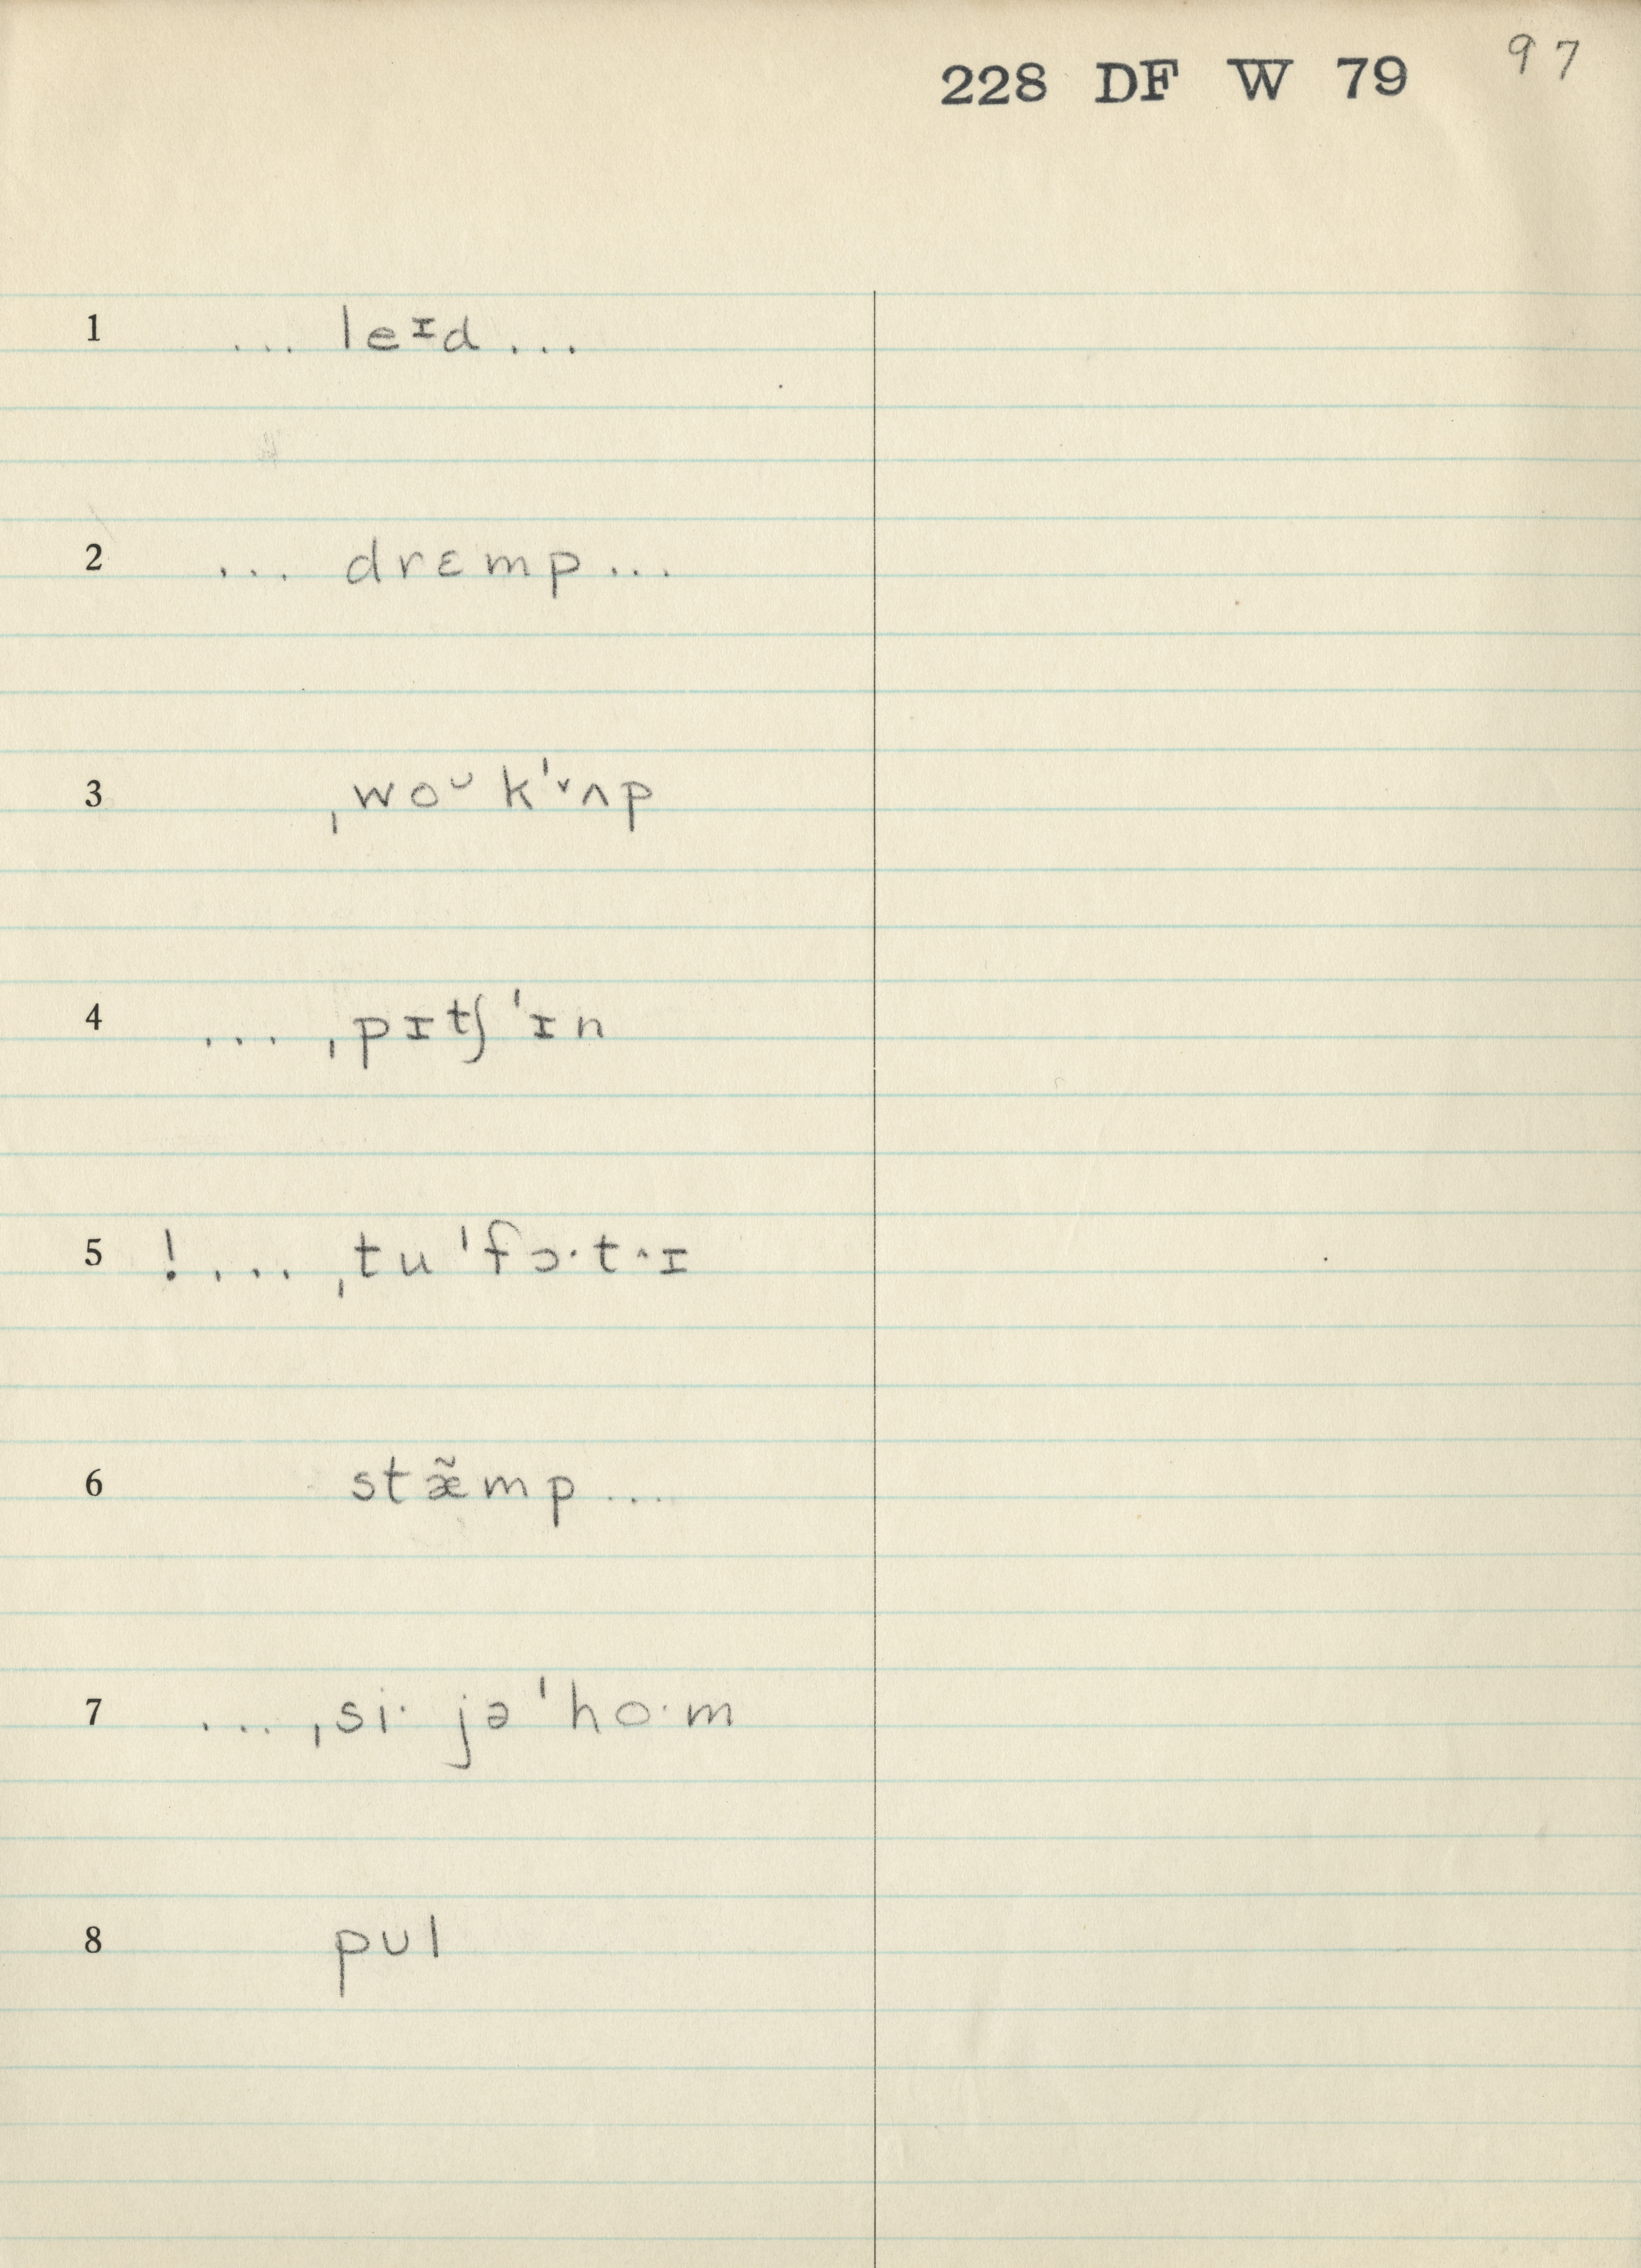 228 DF W 79 97
1 ... leᶦd ...
2 ... drɛmp ...
3 ˌwoᶷkˈ˅ʌp
4 ... ˌpɪtʃˈɪn
5 ! ... ˌtuˈfɔ·t^ɪ
6 stæ̃mp ...
7 ... ˌsi· jəˈho·m
8 pʊl